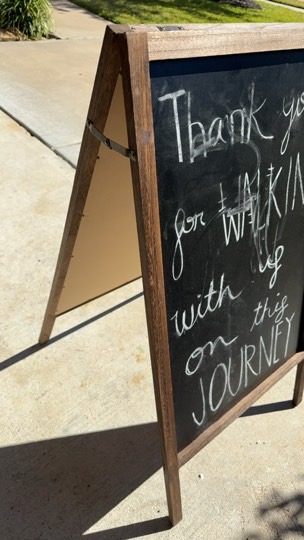 Thank yo
for WALKIN
with us
on this
JOURNEY